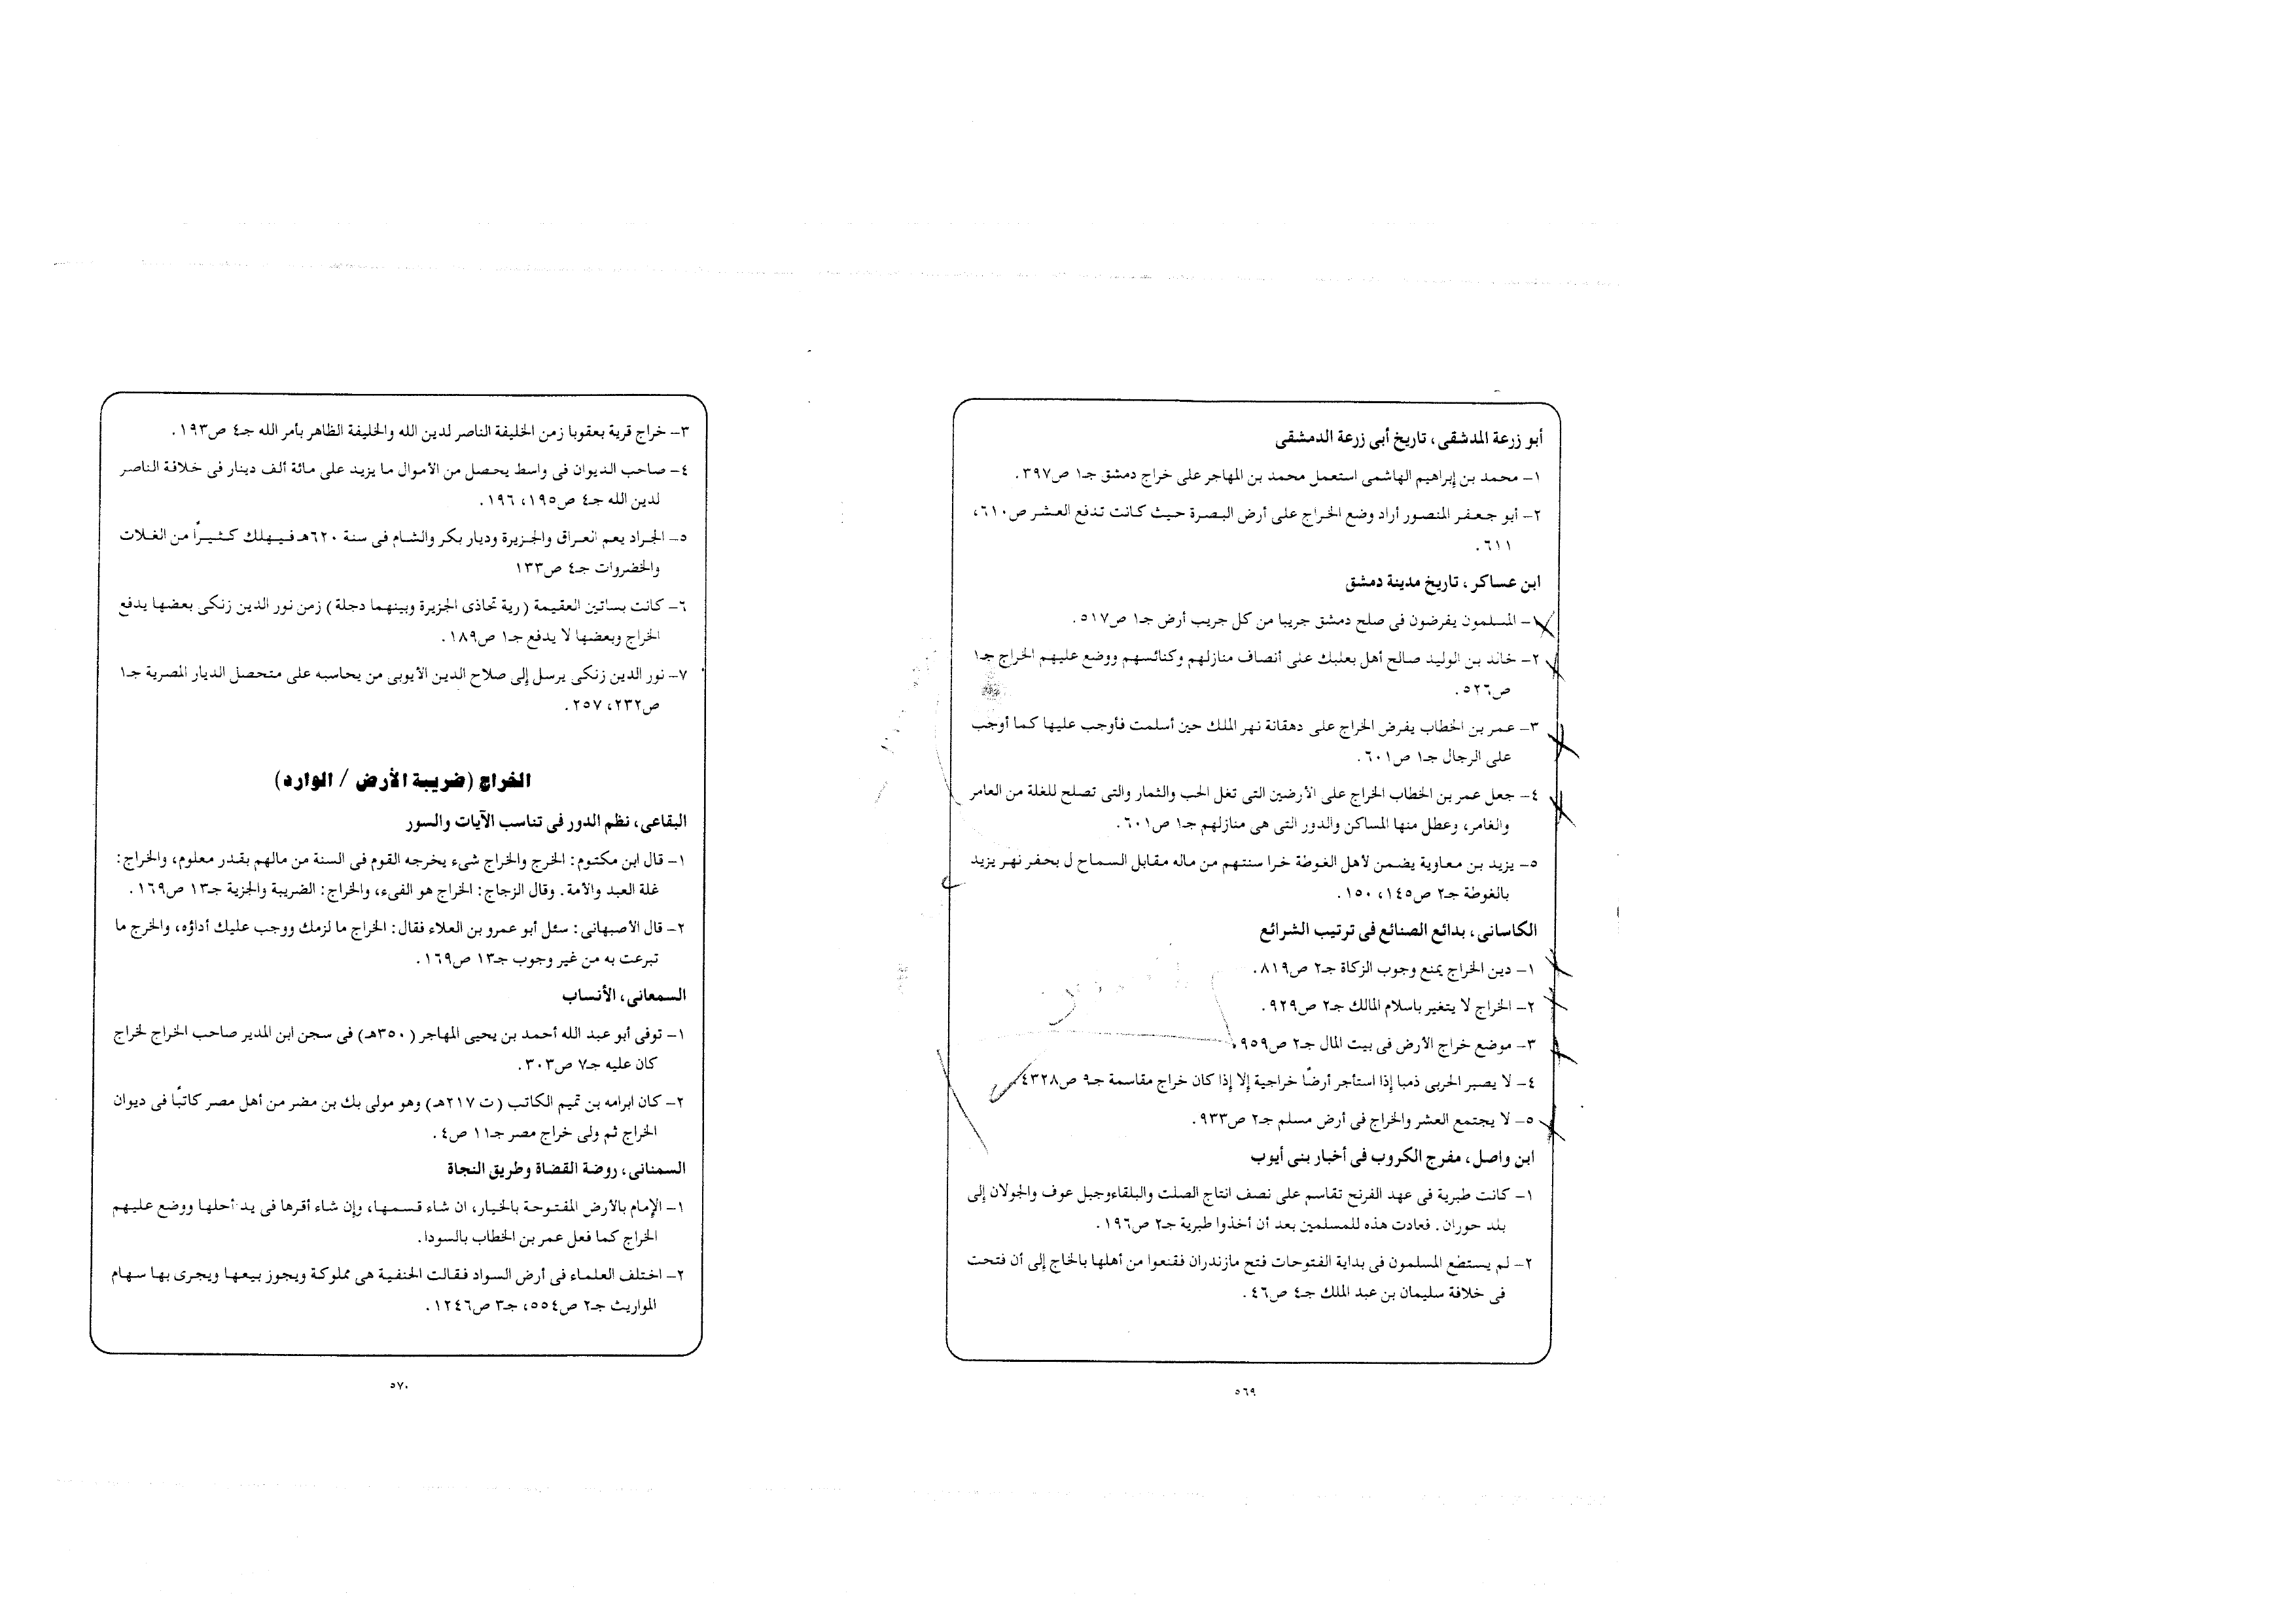 أبو زرعة المدشقى، تاريخ أبى زرعة الدمشقى
١- محمد بن إبراهيم الهاشمى استعمل محمد بن المهاجر على خراج دمشق جـ١ ص٣٩٧.
٢- أبو جعفر المنصور أراد وضع الخراج على أرض البصرة حيث كانت تدفع العشر ص٦١٠،
٦١١.
ابن عساكر، تاريخ مدينة دمشق
١- المسلمون يفرضون فى صلح دمشق جريبا من كل جريب أرض جـ١ ص٥١٧.
٢- خالد بن الوليد صالح أهل بعلبك على أنصاف منازلهم وكنائسهم ووضع عليهم الخراج جـ١
ص٥٢٦.
٣- عمر بن الخطاب يفرض الخراج على دهقانة نهر الملك حين أسلمت فأوجب عليها كما أوجب
على الرجال جـ١ ص٦٠١.
٤- جعل عمر بن الخطاب الخراج على الأرضين التى تغل الحب والثمار والتى تصلح للغلة من العامر
والغامر، وعطل منها المساكن والدور التى هى منازلهم جـ١ ص٦٠١.
٥- يزيد بن معاوية يضمن لأهل الغوطة خرا سنتهم من ماله مقابل السماح ل بحفر نهر يزيد
بالغوطة جـ٢ ص١٤٥، ١٥٠.
الكاسانى، بدائع الصنائع فى ترتيب الشرائع
١- دين الخراج يمنع وجوب الزكاة جـ٢ ص٨١٩.
٢- الخراج لا يتغير باسلام المالك جـ٢ ص٩٢٩.
٣- موضع خراج الأرض فى بيت المال جـ٢ ص٩٥٩.
٤- لا يصبر الحربى ذمبا إذا استأجر أرضًا خراجية إلا إذا كان خراج مقاسمة جـ٩ ص٤٣٢٨.
٥- لا يجتمع العشر والخراج فى أرض مسلم جـ٢ ص٩٣٣.
ابن واصل، مفرج الكروب فى أخبار بنى أيوب
١- كانت طبرية فى عهد الفرنج تقاسم على نصف انتاج الصلت والبلقاءوجبل عوف والجولان إلى
بلد حوران. فعادت هذه للمسلمين بعد أن أخذوا طبرية جـ٢ ص١٩٦.
٢- لم يستطع المسلمون فى بداية الفتوحات فتح مازندران فقنعوا من أهلها بالخاج إلى أن فتحت
فى خلافة سليمان بن عبد الملك جـ٤ ص٤٦.
٥٦٩
٣- خراج قرية بعقوبا زمن الخليفة الناصر لدين الله والخليفة الظاهر بأمر الله جـ٤ ص١٩٣.
٤- صاحب الديوان فى واسط يحصل من الأموال ما يزيد على مائة ألف دينار فى خلافة الناصر
لدين الله جـ٤ ص١٩٥، ١٩٦.
٥- الجراد يعم العراق والجزيرة وديار بكر والشام فى سنة ٦٢٠هـ فيهلك كثيرًا من الغلات
والخضروات جـ٤ ص١٣٣
٦- كانت بساتين العقيمة (رية تحاذى الجزيرة وبينهما دجلة) زمن نور الدين زنكى بعضها يدفع
الخراج وبعضها لا يدفع جـ١ ص١٨٩.
٧- نور الدين زنكى يرسل إلى صلاح الدين الأيوبى من يحاسبه على متحصل الديار المصرية جـ١
ص٢٣٢، ٢٥٧.
الخراج (ضريبة الأرض / الوارد)
البقاعى، نظم الدور فى تناسب الآيات والسور
١- قال ابن مكتوم: الخرج والخراج شىء يخرجه القوم فى السنة من مالهم بقدر معلوم، والخراج:
غلة العبد والأمة. وقال الزجاج: الخراج هو الفىء، والخراج: الضريبة والجزية جـ١٣ ص١٦٩.
٢- قال الأصبهانى: سئل أبو عمرو بن العلاء فقال: الخراج ما لزمك ووجب عليك أداؤه، والخرج ما
تبرعت به من غير وجوب جـ١٣ ص١٦٩.
السمعانى، الأنساب
١- توفى أبو عبد الله أحمد بن يحيى المهاجر (٣٥٠هـ) فى سجن ابن المدير صاحب الخراج لخراج
كان عليه جـ٧ ص٣٠٣.
٢- كان ابرامه بن تميم الكاتب (ت ٢١٧هـ) وهو مولى بك بن مضر من أهل مصر كاتبًا فى ديوان
الخراج ثم ولى خراج مصر جـ١١ ص٤.
السمنانى، روضة القضاة وطريق النجاة
١- الإمام بالأرض المفتوحة بالخيار، ان شاء قسمها، وإن شاء أقرها فى يد أحلها ووضع عليهم
الخراج كما فعل عمر بن الخطاب بالسودا.
٢- اختلف العلماء فى أرض السواد فقالت الحنفية هى مملوكة ويجوز بيعها ويجرى بها سهام
المواريث جـ٢ ص٥٥٤، جـ٣ ص١٢٤٦.
٥٧٠